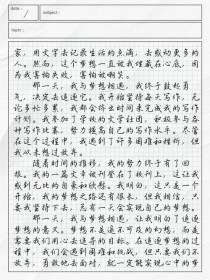 date:
subject:
topic:
家，用文字去记录生活的点滴，去感动更多的
人。然而，这个梦想一直被我埋藏在心底，因
为我害怕失败，害怕被嘲笑。
那一天，我与梦想相遇，我终于鼓起勇
气，决定去追逐它。我开始坚持每天写作，无
论多忙多累，我都会挤出时间来完成我的写作
计划。我参加了学校的文学社团，积极参与各
种写作比赛，努力提高自己的写作水平。尽管
在这个过程中，我遇到了许多困难和挫折，但
我从未想过放弃。
随着时间的推移，我的努力终于有了回
报。我的一篇文章被刊登在了校刊上，这让我
感到无比的自豪和欣慰。我明白，这只是一个
开始，我的梦想之路还有很长，但我相信，只
要我坚持下去，总有一天会实现自己的梦想。
那一天，我与梦想相遇，让我明白了追逐
梦想的意义。梦想不是遥不可及的幻想，而是
需要我们用心去追寻的目标。在追逐梦想的过
程中，我们会遇到困难和挑战，但只要我们不
放弃，勇敢地去面对，就一定能实现心中的梦